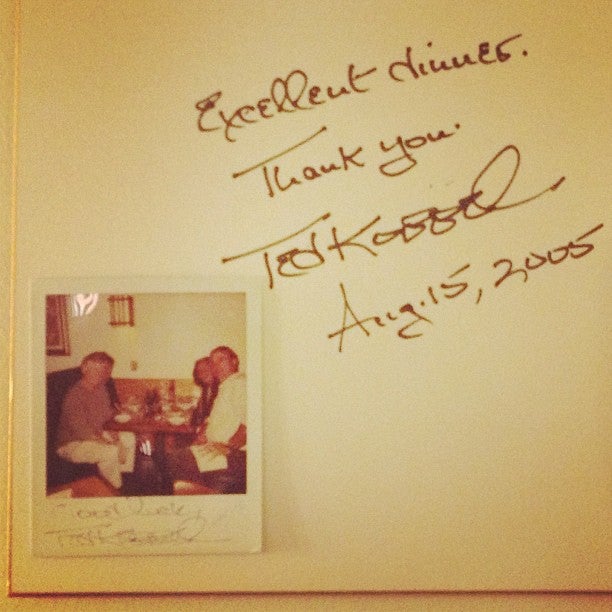 Excellent dinner.
Thank you.
Ted Koppel
Aug. 15, 2005
Good Luck,
Ted Koppel